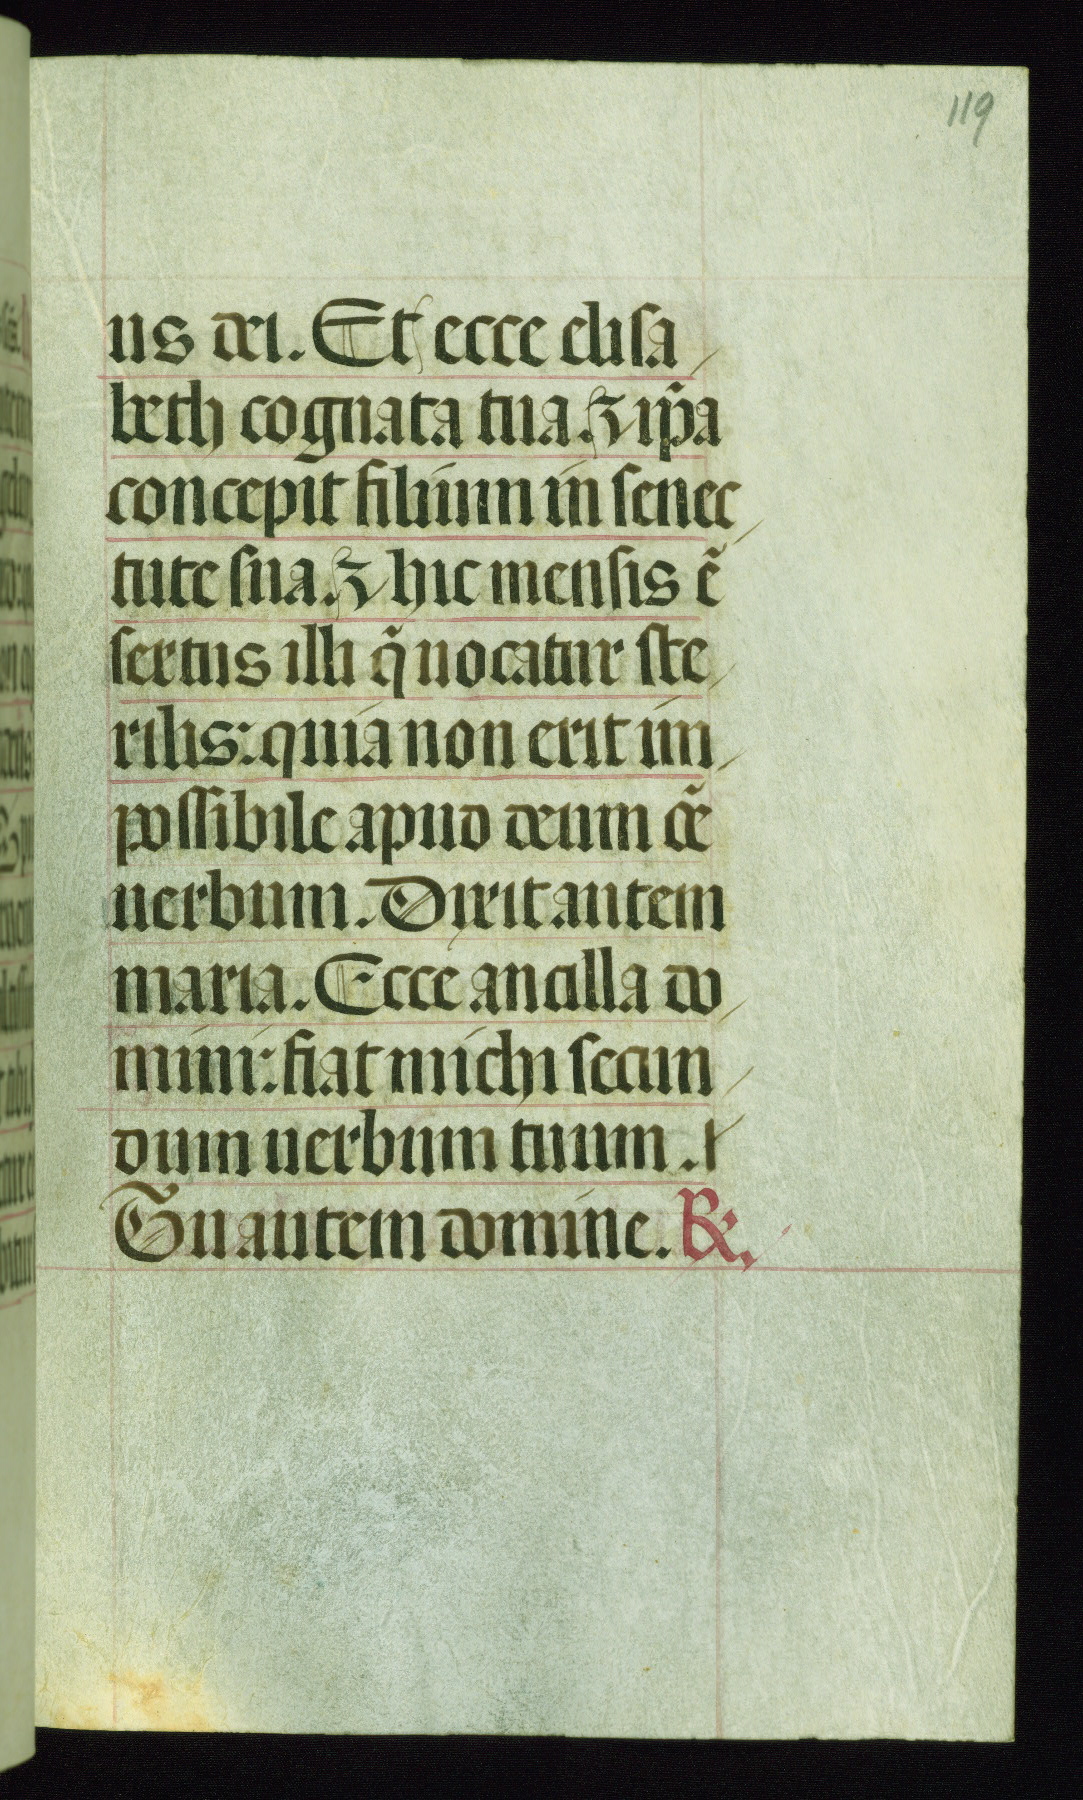 119
us dei. Et ecce elisa
beth cognata tua. ⁊ ip̃a
concepit filium in senec
tute sua. ⁊ hic mensis ẽ
sextus illi q̃ uocatur ste
rilis: quia non erit im
possibile apud deum oẽ
uerbum. Dixit autem
maria. Ecce ancilla do
mini: fiat michi secun
dum uerbum tuum.
Tu autem domine. ℟.